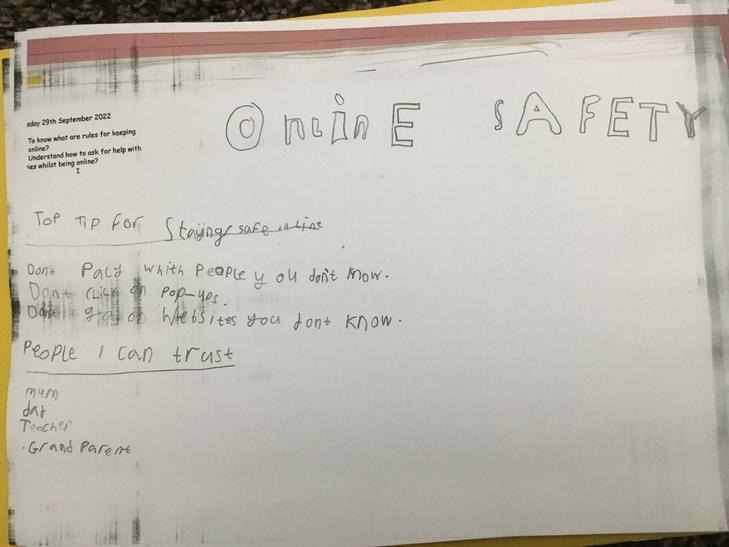 sday 29th September 2022
OnlinE SAFETY
To know what are rules for keeping
online?
Understand how to ask for help with
ies whilst being online?
Top Tip For Staying safe online
Dont Paly whith People you don't know.
Dont click on Pop-ups.
Dont go on Websites you dont know.
People I can trust
mum
dad
Teacher
.Grand Parent